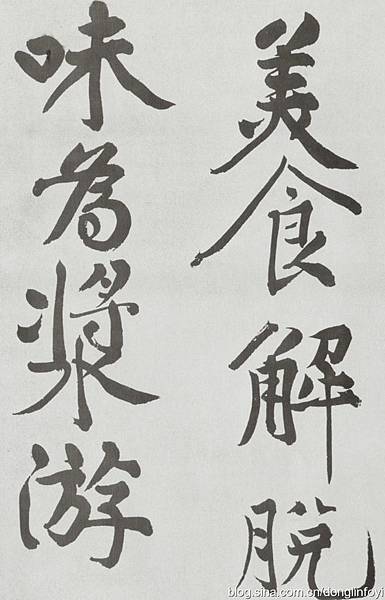 美食解脫
味為漿游
blog.sina.com.cn/donglinfoyi